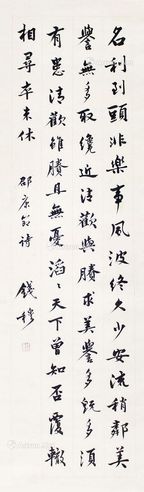 名利到頭非樂事風波終久少安流稍鄰美
譽無多取纔近清歡與賸求美譽多既多須
有患清歡雖賸且無憂滔滔天下曾知否覆轍
相尋卒未休 邵康節詩 錢穆